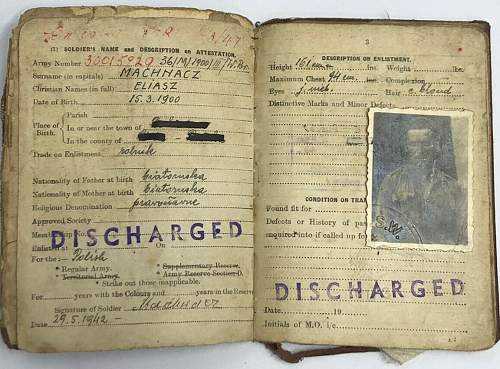 (1) SOLDIER'S NAME and DESCRIPTION on ATTESTATION.
Army Number 30015920 36/M/1900/III
Surname (in capitals) MACHNACZ
Christian Names (in full) ELIASZ
Date of Birth 15.3.1900
Place of Birth.
Parish
In or near the town of
In the county of
Trade on Enlistment rolnik
Nationality of Father at birth białoruska
Nationality of Mother at birth białoruska
Religious Denomination prawosławne
Approved Society
Membership No.
DISCHARGED
Enlisted at On
For the:— Polish
* Regular Army. * Supplementary Reserve.
* Territorial Army. * Army Reserve Section D.
* Strike out those inapplicable.
For years with the Colours and years in the Reserve
Signature of Soldier
Date 29.5.1942 -
3
DESCRIPTION ON ENLISTMENT.
Height 161 cm Weight lbs.
Maximum Chest 94 cm ins. Complexion
Eyes nieb. Hair c. blond
Distinctive Marks and Minor Defects
CONDITION ON TRA
Found fit for
Defects or History of pa
enquired into if called up for
DISCHARGED
Date 19
Initials of M.O. i/c